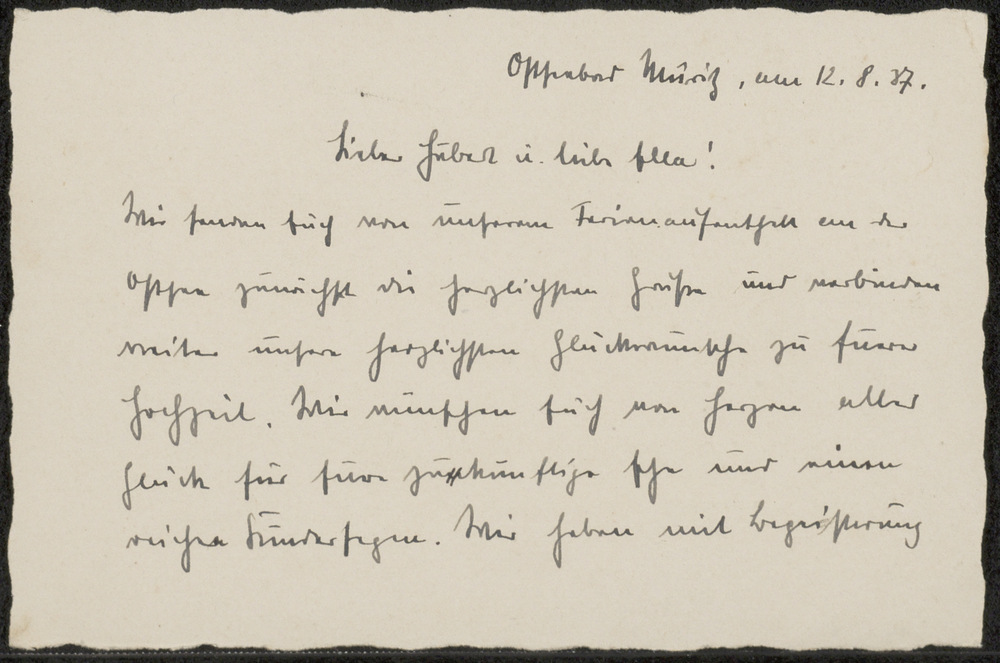 Ostseebad Müritz, am 12. 8. 37.
Lieber Hubert u. liebe Ella!
Wir senden Euch von unserem Ferienaufenthalt an der
Ostsee zunächst die herzlichsten Grüße und verbinden
weiter unsere herzlichsten Glückwünsche zu Euerer
Hochzeit. Wir wünschen Euch von Herzen alles
Glück für Eure zukünftige Ehe und einen
reichen Kindersegen. Wir haben mit Begeisterung